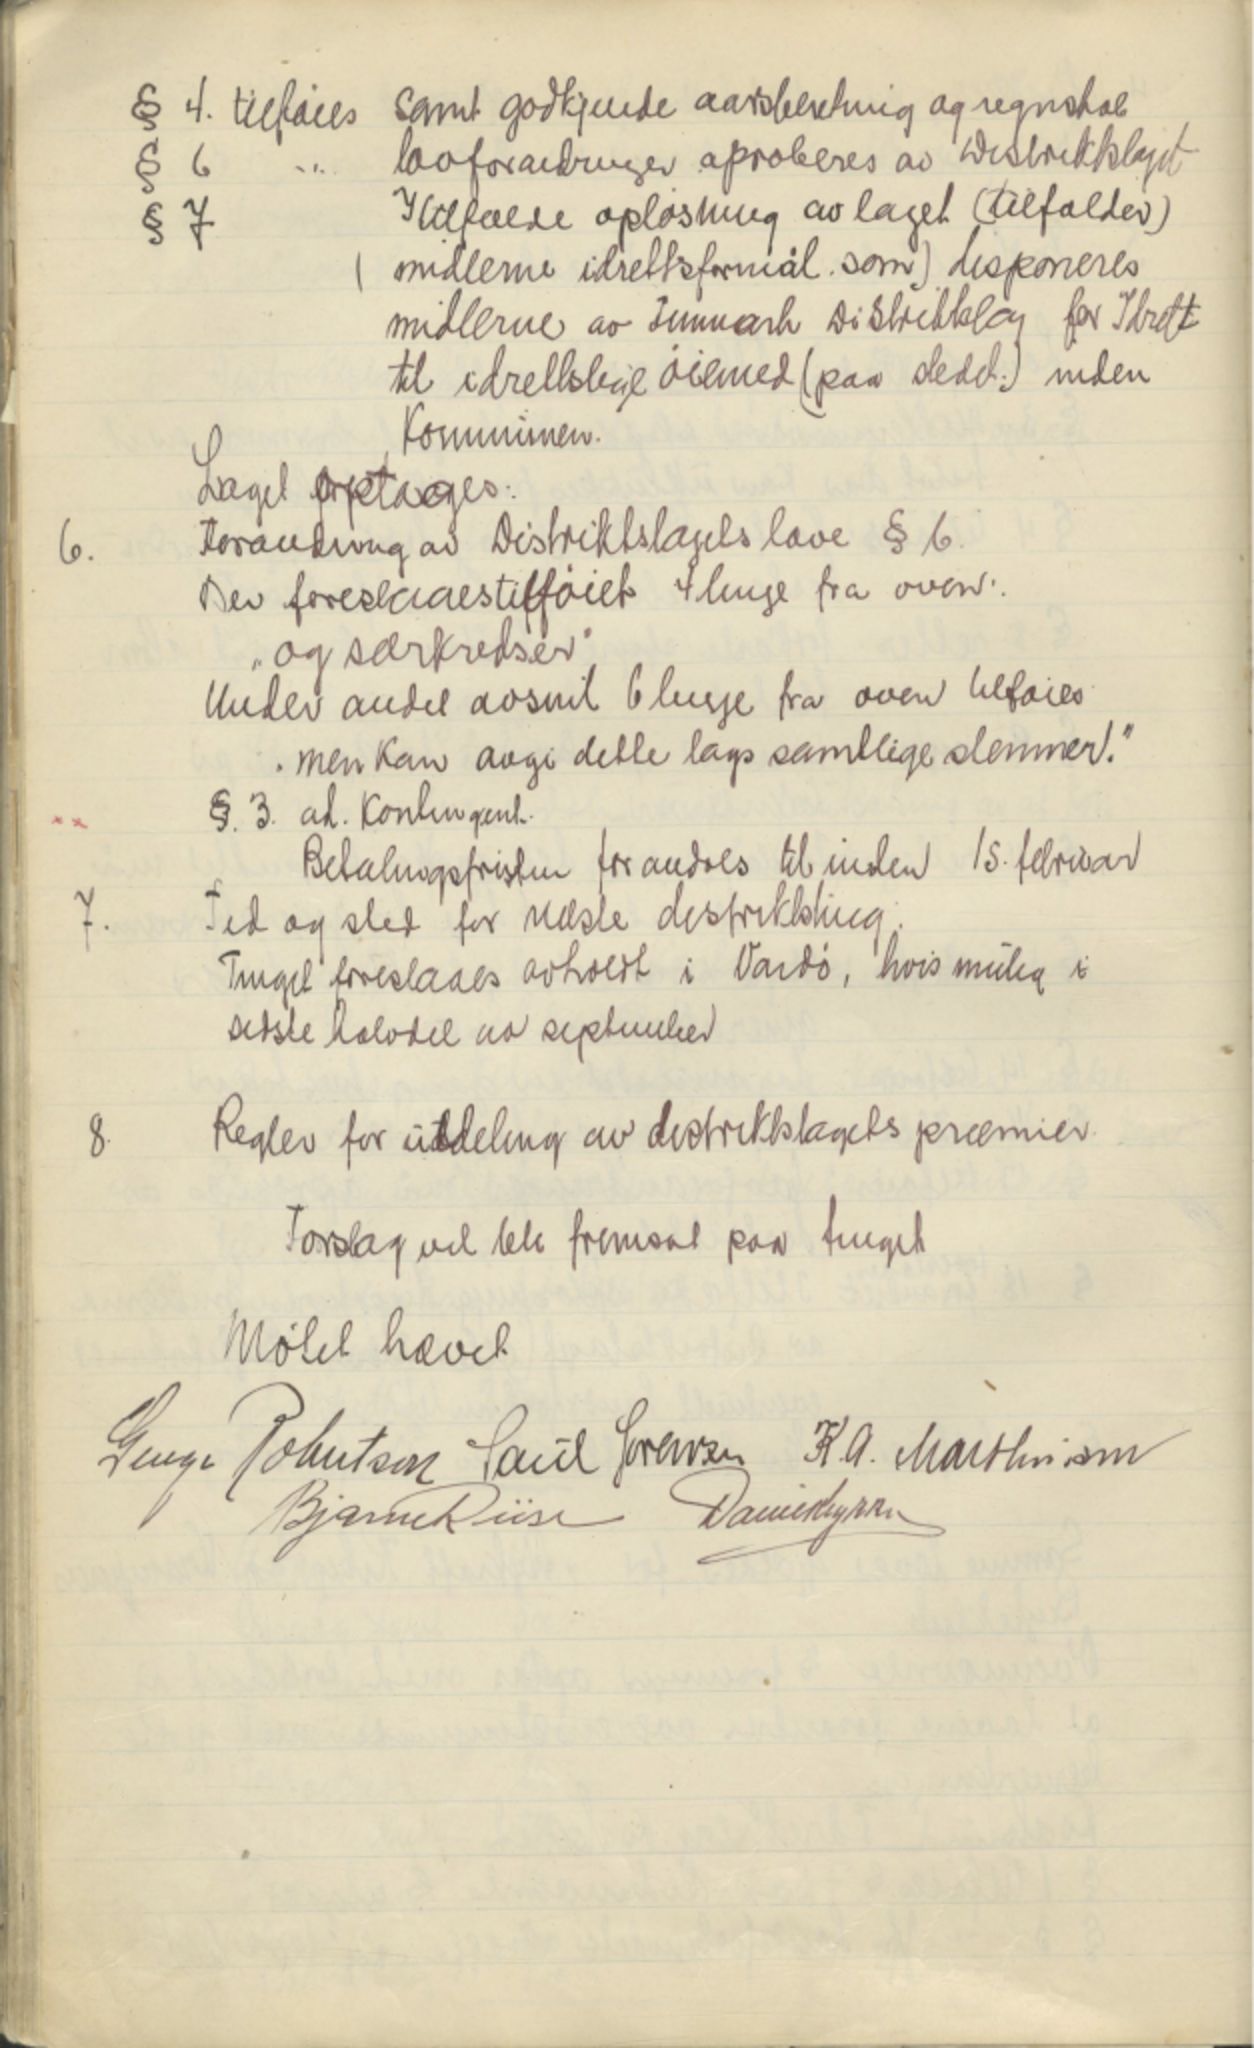 § 4. tilføies samt godkjende aarsberetning og regnskab
§ 6 " lovforandringer aproberes av Distriktslaget
§ 7 I tilfælde opløsning av laget (tilfalder)
( midlerne idrettsformål som) disponeres
midlerne av Finmark Distriktslag for Idrett
til idrettslige øiemed (paa stedet.) inden
Kommunen.
Laget optages.
6. Forandring av Distriktslagets love § 6.
Der foreslaaes tilføiet 4 linje fra oven:
"og særkredser"
Under andet avsnit 6 linje fra oven tilføies
"men kan avgi dette lags samtlige stemmer."
§. 3. ad. Kontingent.
Betalingsfristen forandres til inden 15. februar
7. Tid og sted for næste distriktsting.
Tinget foreslaaes avholdt i Vardø, hvis mulig i
sidste halvdel av september
8. Regler for uddeling av distriktslagets præmier.
Forslag vil bli fremsat paa tinget
Møtet hævet
George Robertson Paul Sørensen K. A. Marthinsen
Bjarne Riise